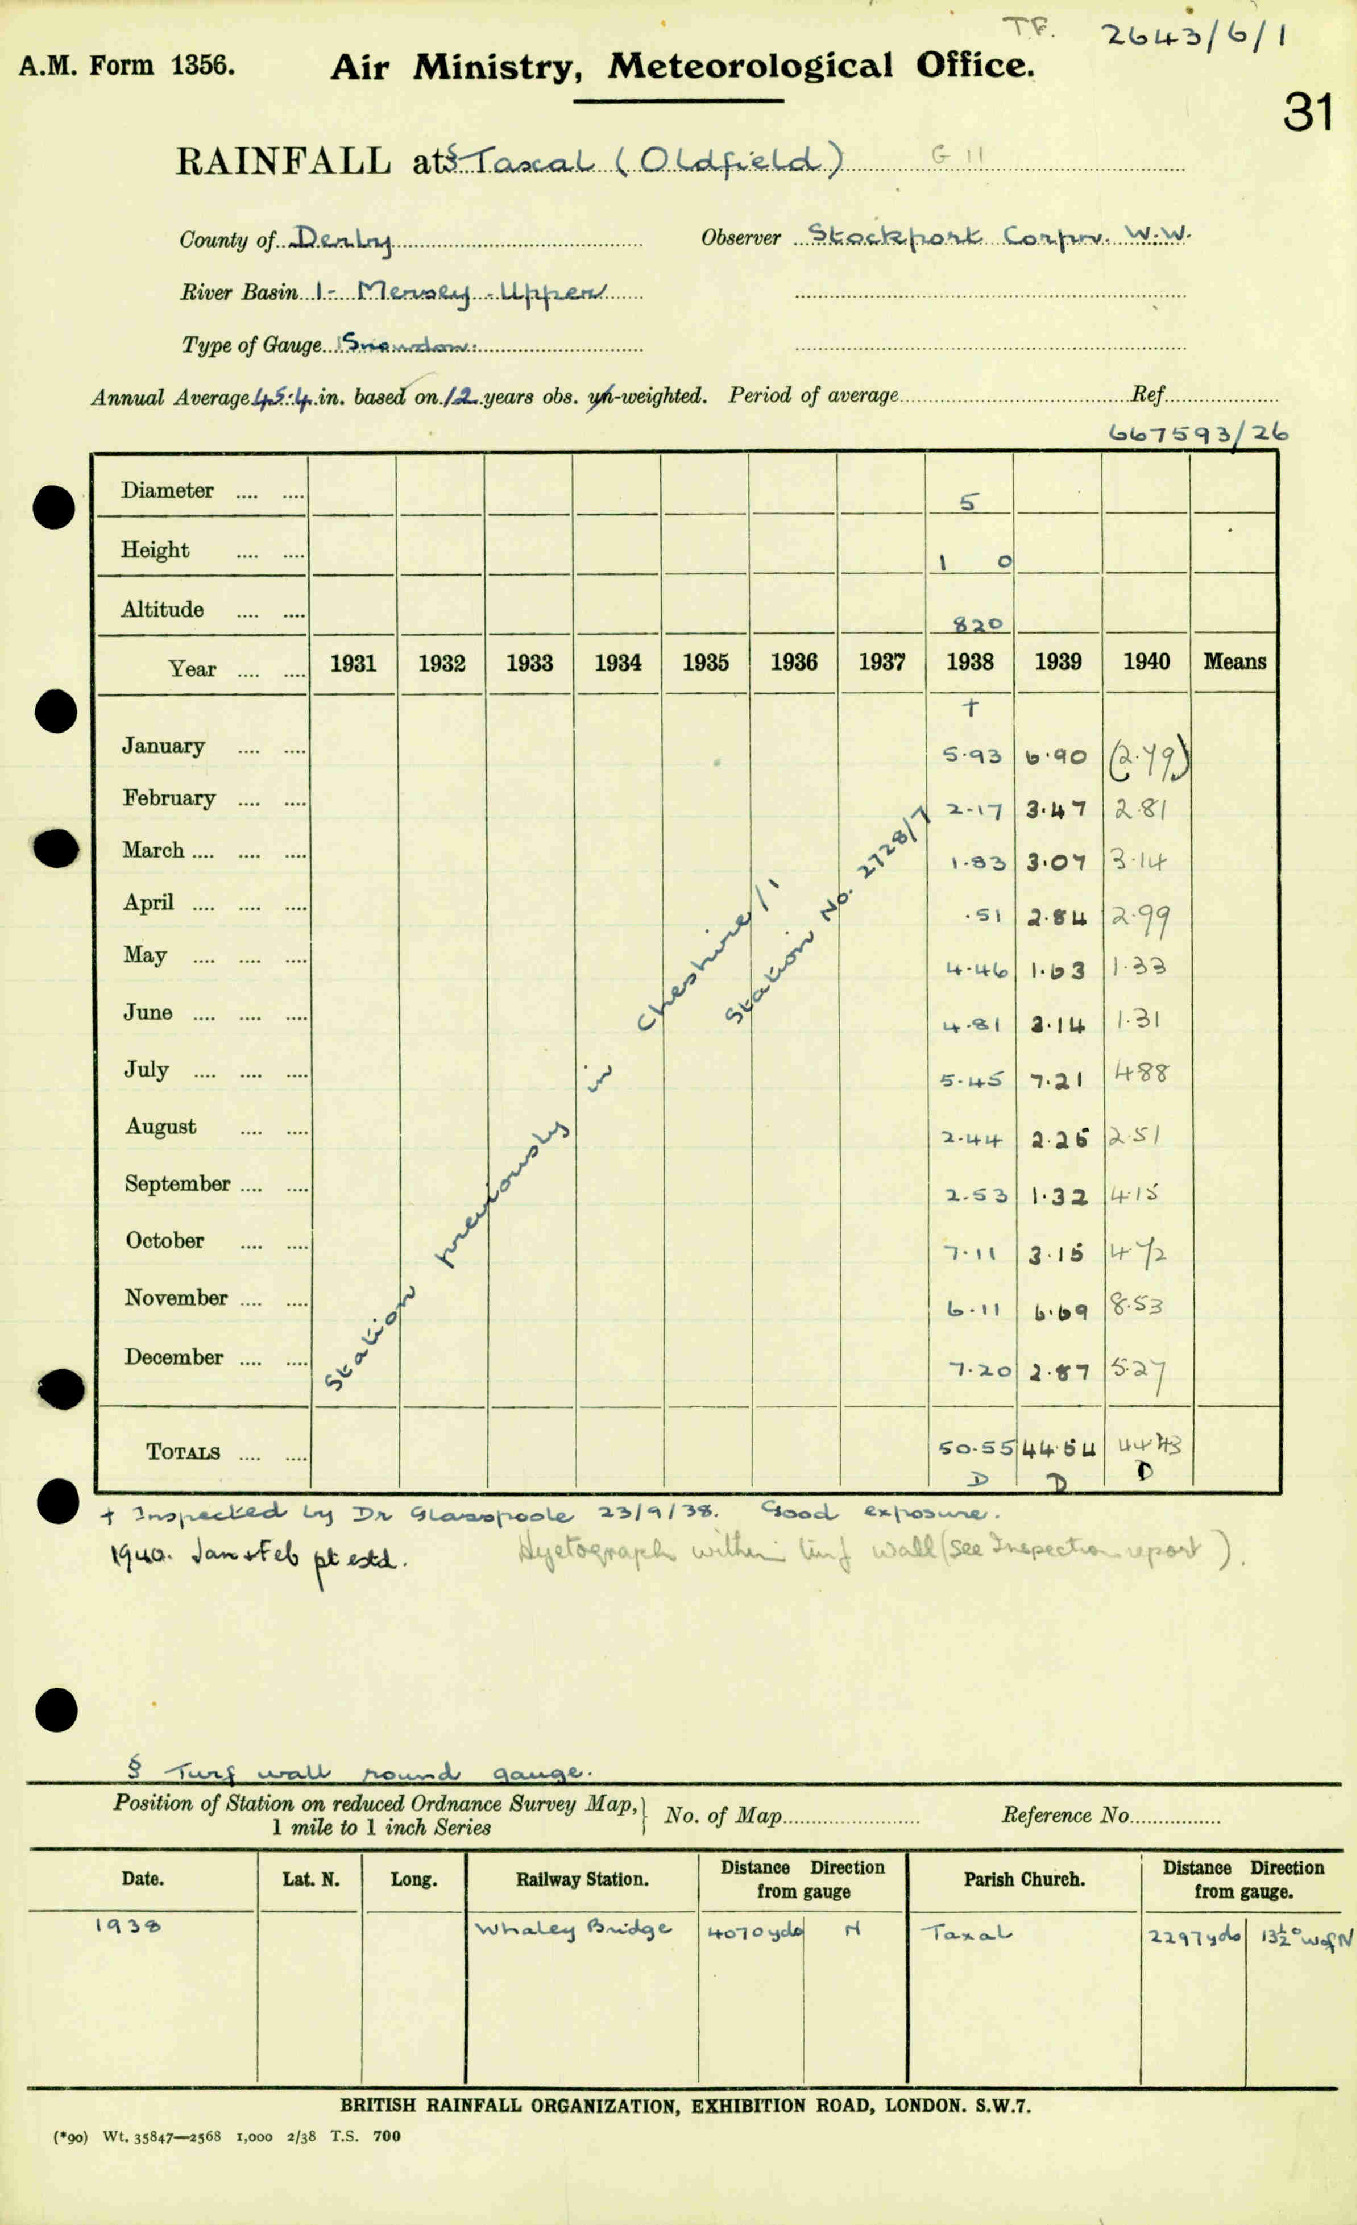 T.F. 2643/6/1
A.M. Form 1356. Air Ministry, Meteorological Office.
31
RAINFALL at § Taxal (Oldfield) G 11
County of Derby Observer Stockport Corpn. W.W.
River Basin 1- Mersey - Upper
Type of Gauge Snowdon.
Annual Average 45.4 in. based on 12 years obs. un-weighted. Period of average Ref.
667593/26
Diameter .... .... 5
Height .... .... 1 0
Altitude .... .... 820
Year .... .... 1931 1932 1933 1934 1935 1936 1937 1938 1939 1940 Means
†
January .... .... 5.93 6.90 (2.79)
February .... .... 2.17 3.47 2.81
March .... .... .... 1.83 3.07 3.14
April .... .... .... .51 2.84 2.99
May .... .... .... 4.46 1.63 1.33
June .... .... .... 4.81 3.14 1.31
July .... .... .... 5.45 7.21 4.88
August .... .... 2.44 2.25 2.51
September .... .... 2.53 1.32 4.15
October .... .... 7.11 3.15 4.72
November .... .... 6.11 6.69 8.53
December .... .... 7.20 2.87 5.27
Station previously in Cheshire/1
Station No. 2728/7
TOTALS .... .... 50.55 44.54 44.43
D D D
† Inspected by Dr Glasspoole 23/9/38. Good exposure.
1940. Jan & Feb pt estd. Hyetograph within turf wall (See Inspection report).
§ Turf wall round gauge.
Position of Station on reduced Ordnance Survey Map, 1 mile to 1 inch Series } No. of Map Reference No.
Date. Lat. N. Long. Railway Station. Distance Direction from gauge Parish Church. Distance Direction from gauge.
1938 Whaley Bridge 4070 yds N Taxal 2297 yds 13½° W of N
BRITISH RAINFALL ORGANIZATION, EXHIBITION ROAD, LONDON. S.W.7.
(*90) Wt. 35847—2568 1,000 2/38 T.S. 700